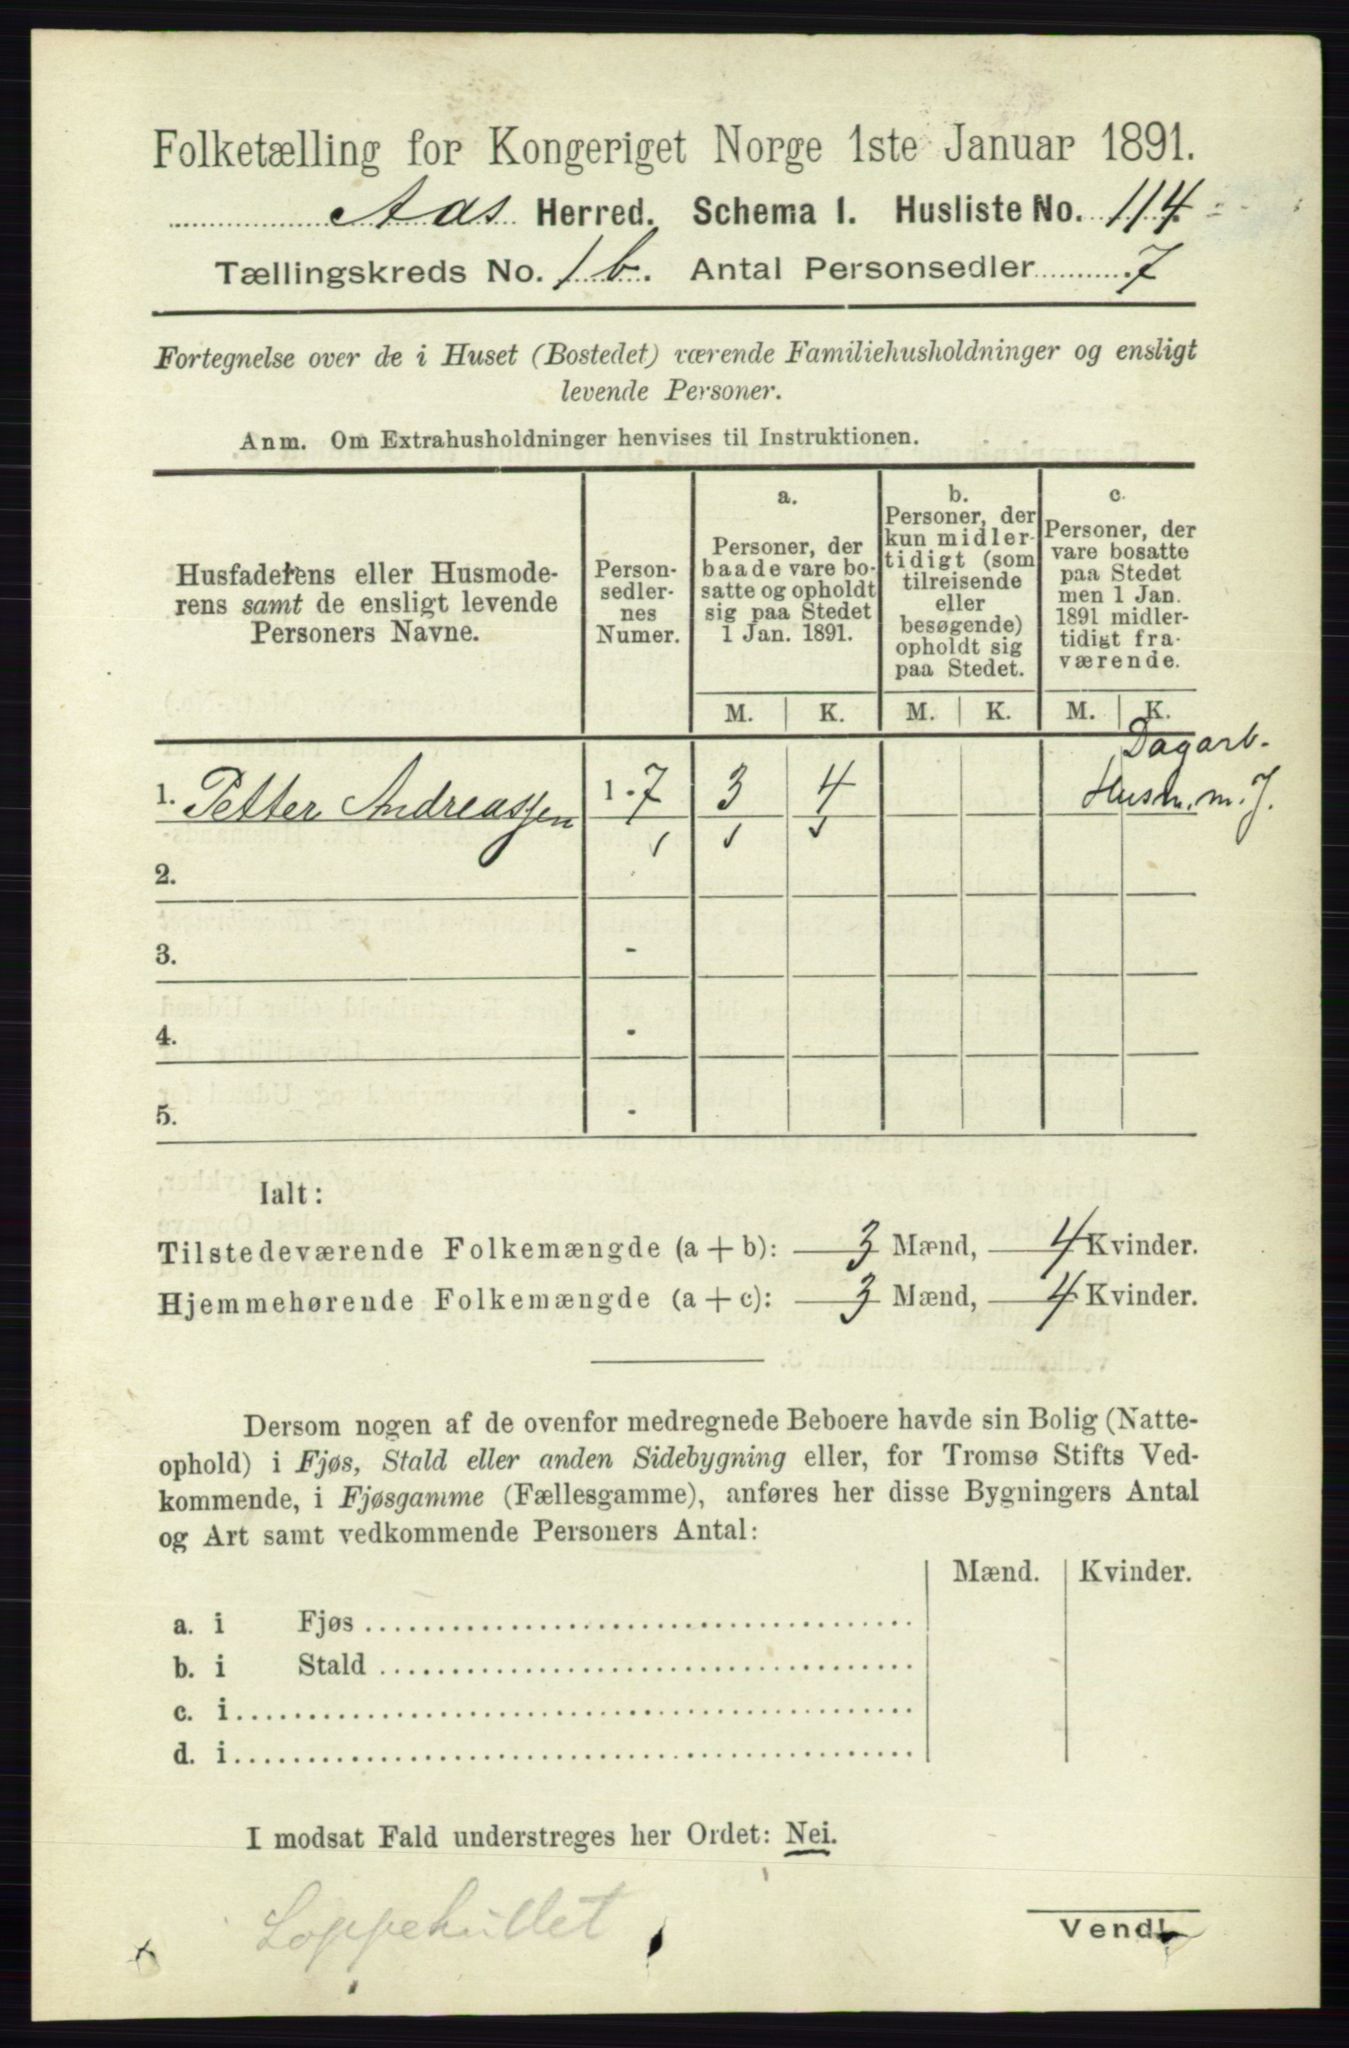 Folketælling for Kongeriget Norge 1ste Januar 1891.
Aas Herred. Schema I. Husliste No. 114
Tællingskreds No. 1 b. Antal Personsedler 7
Fortegnelse over de i Huset (Bostedet) værende Familiehusholdninger og ensligt
levende Personer.
Anm. Om Extrahusholdninger henvises til Instruktionen.
Husfaderens eller Husmode-
rens samt de ensligt levende
Personers Navne.
Person-
sedler-
nes
Numer.
a.
Personer, der
baade vare bo-
satte og opholdt
sig paa Stedet
1 Jan. 1891.
b.
Personer, der
kun midler-
tidigt (som
tilreisende
eller
besøgende)
opholdt sig
paa Stedet.
c.
Personer, der
vare bosatte
paa Stedet
men 1 Jan.
1891 midler-
tidigt fra-
værende.
M. K. M. K. M. K.
Dagarb.
1. Petter Andreassen 1 - 7 3 4 Husm. m. J.
2.
3. -
4. -
5. -
Ialt:
Tilstedeværende Folkemængde (a + b): 3 Mænd, 4 Kvinder.
Hjemmehørende Folkemængde (a + c): 3 Mænd, 4 Kvinder.
Dersom nogen af de ovenfor medregnede Beboere havde sin Bolig (Natte-
ophold) i Fjøs, Stald eller anden Sidebygning eller, for Tromsø Stifts Ved-
kommende, i Fjøsgamme (Fællesgamme), anføres her disse Bygningers Antal
og Art samt vedkommende Personers Antal:
Mænd. Kvinder.
a. i Fjøs
b. i Stald
c. i
d. i
I modsat Fald understreges her Ordet: Nei.
Loppehullet
Vend!